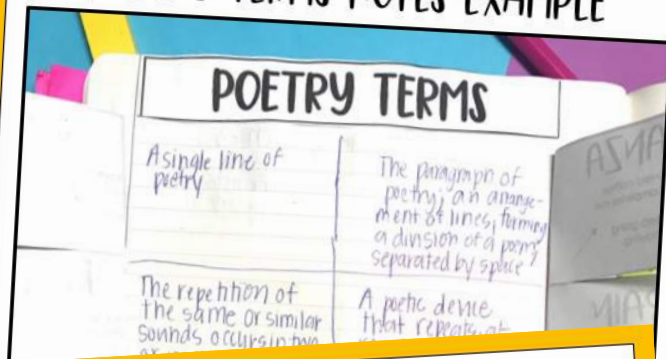 TERMS NOTES EXAMPLE
POETRY TERMS
A single line of
poetry
The paragraph of
poetry; an arrange-
ment of lines, forming
a division of a poem
separated by space
The repetition of
the same or similar
sounds occurs in two
A poetic device
that repeats at